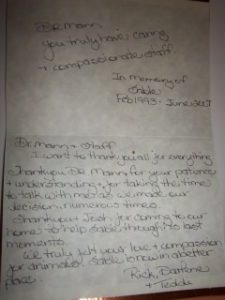 Dr. Mann
you truly have caring
+ compassionate staff.
In memory of
Sable
Feb 1993 - June
Dr. Mann + Staff
I want to thank you all for everything
Thank you Dr. Mann for your patience
+ understanding + for taking the time
to talk with me as we made our
decision, numerous times.
Thank you + Josh for coming to our
home to help Sable through its last
moments.
We truly felt your love + compassion
for animals! Sable is now in a better
place.
Rick, Darlene
+ Teddi